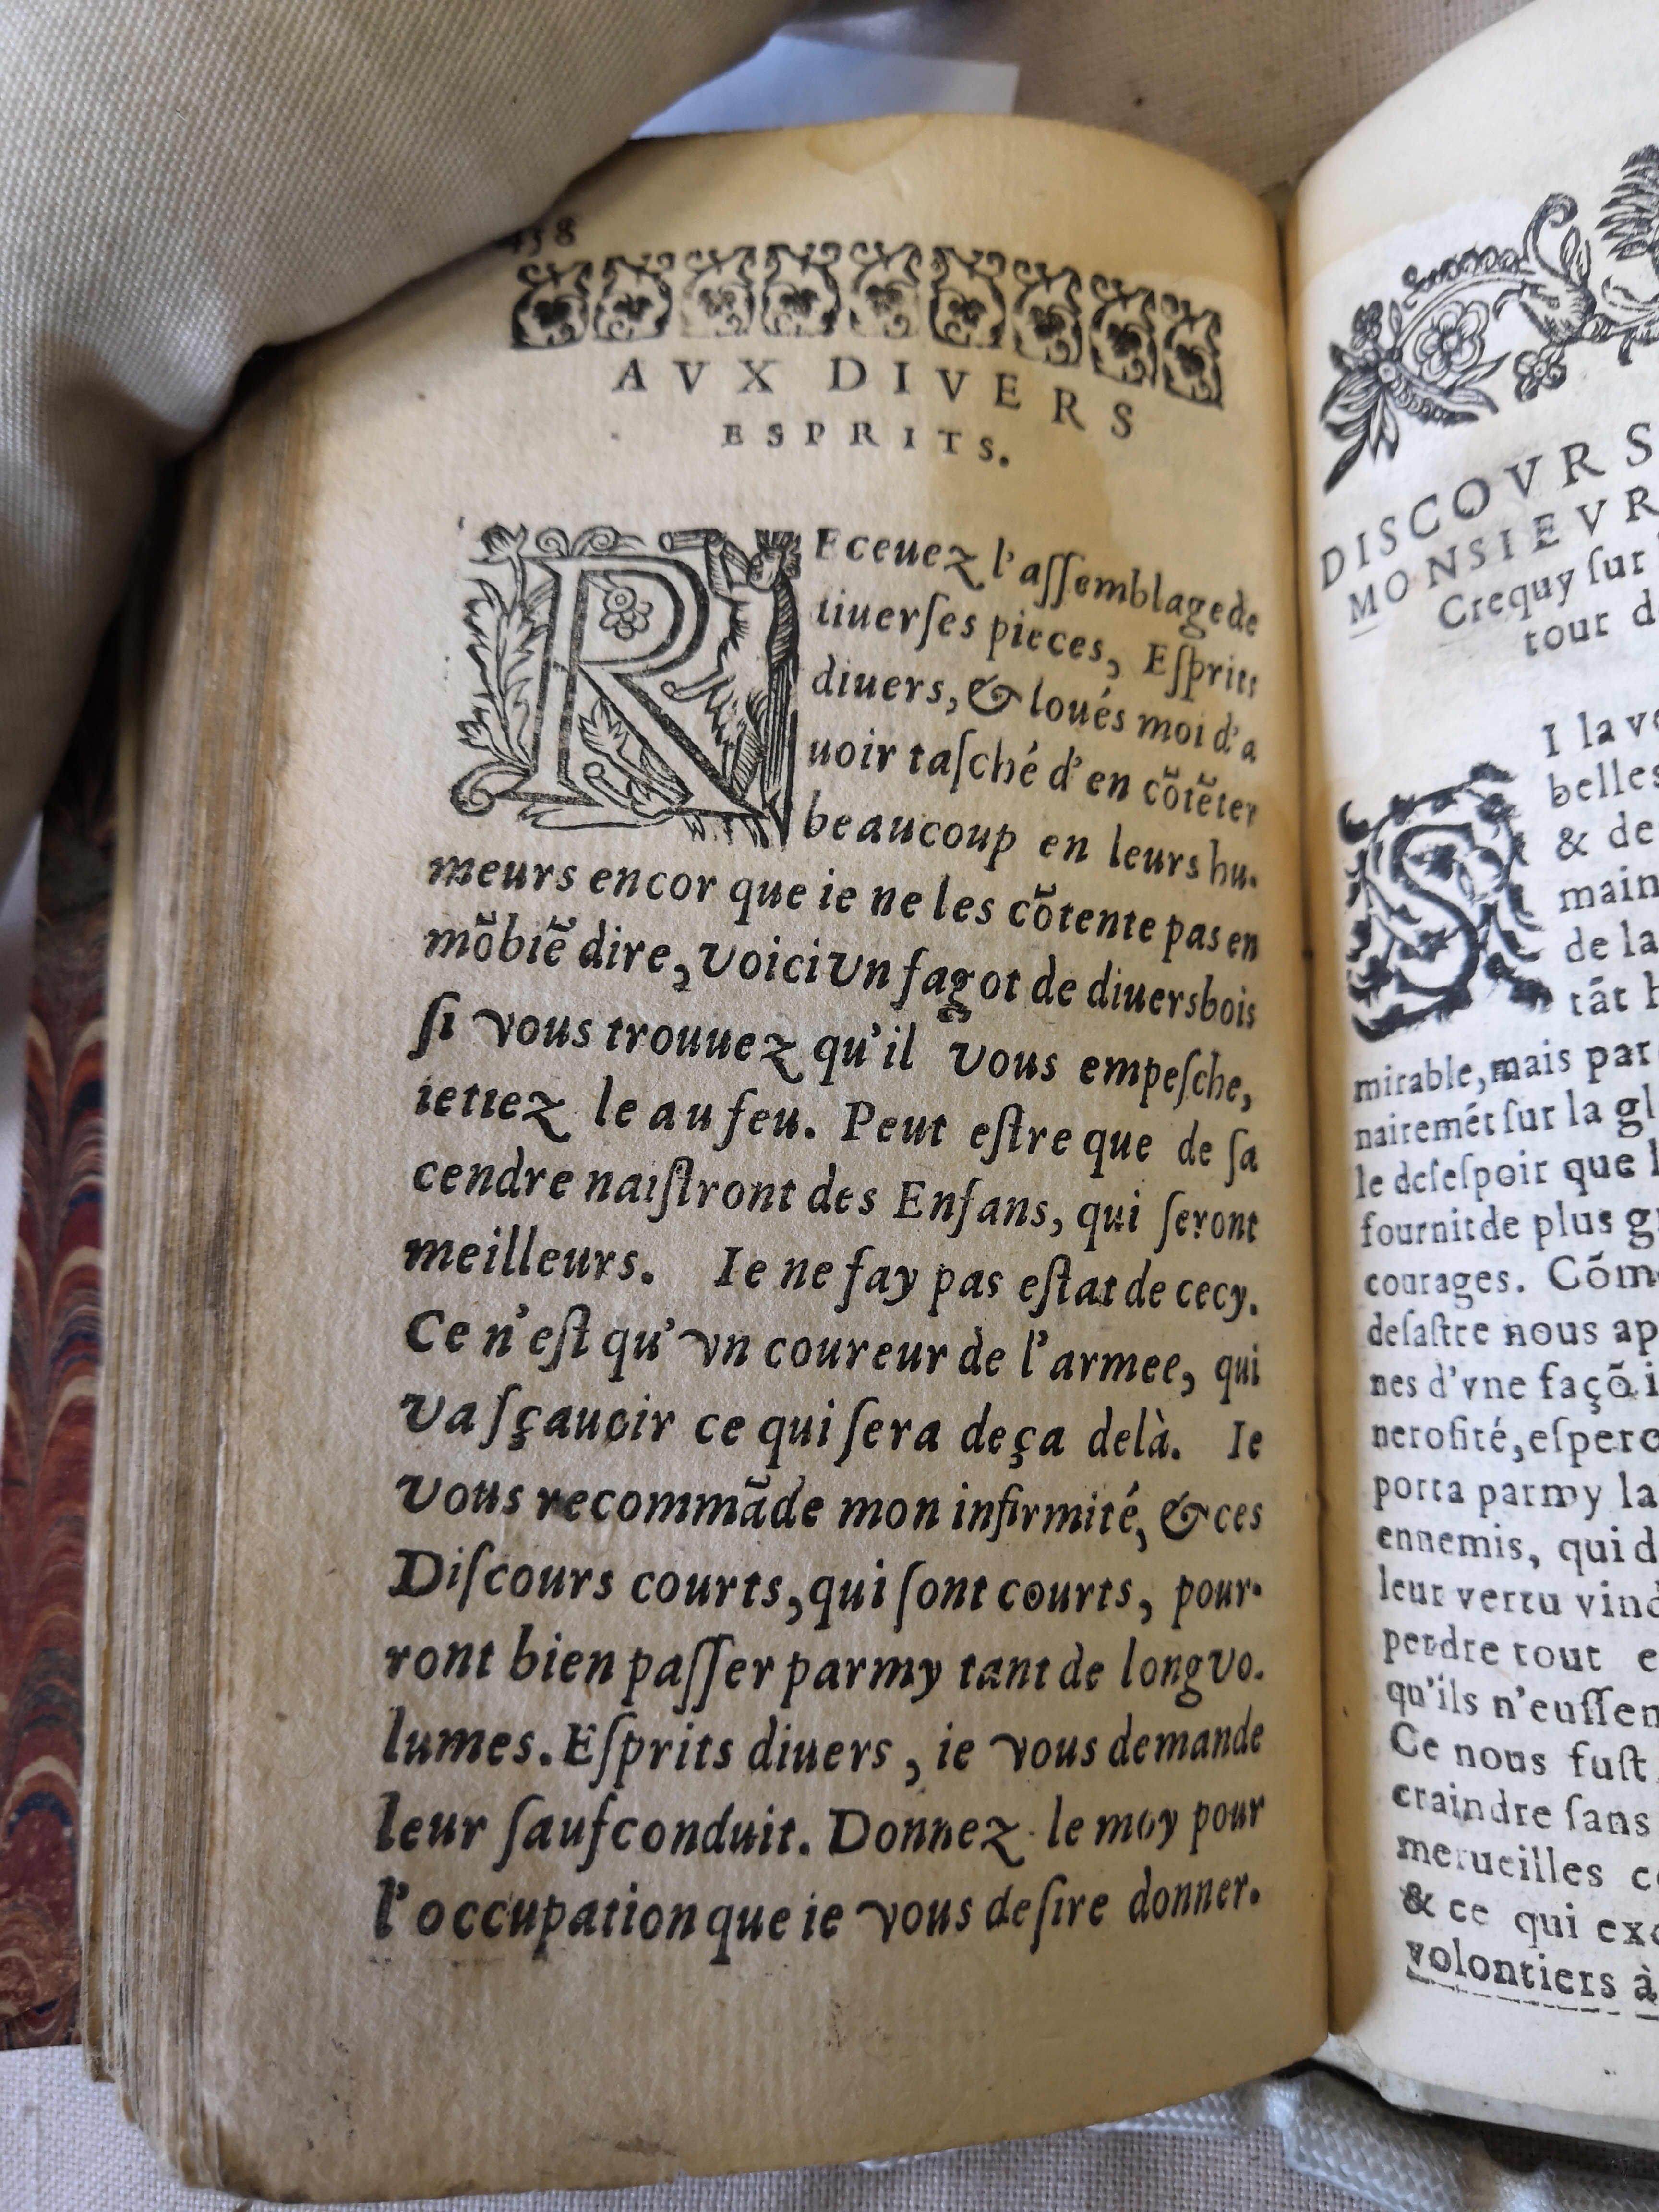 458
AVX DIVERS
ESPRITS.
REceuez l'aſſemblage de
diuerſes pieces, Eſprits
diuers, & loués moi d'a
uoir taſché d'en cõtẽter
beaucoup en leurs hu-
meurs encor que ie ne les cõtente pas en
mõbiẽ dire, voici vn fagot de diuers bois
ſi vous trouuez qu'il vous empeſche,
iettez le au feu. Peut eſtre que de ſa
cendre naiſtront des Enfans, qui ſeront
meilleurs. Ie ne fay pas eſtat de cecy.
Ce n'eſt qu'vn coureur de l'armee, qui
va ſçauoir ce qui ſera deça delà. Ie
vous recommãde mon infirmité, & ces
Diſcours courts, qui ſont courts, pour-
ront bien paſſer parmy tant de long vo-
lumes. Eſprits diuers, ie vous demande
leur ſaufconduit. Donnez le moy pour
l'occupation que ie vous deſire donner.
DISCOVRS
MONSIEVR
Crequy ſur
tour
SI la
belles
& de
main
de la
tãt
mirable, mais par
nairemét ſur la
le deſeſpoir que
fournit de plus
courages.
deſaſtre nous
nes d'vne façõ
neroſité,
porta parmy la
ennemis, qui
leur vertu
perdre tout
qu'ils
Ce nous fuſt
craindre ſans
merueilles
& ce qui
volontiers à